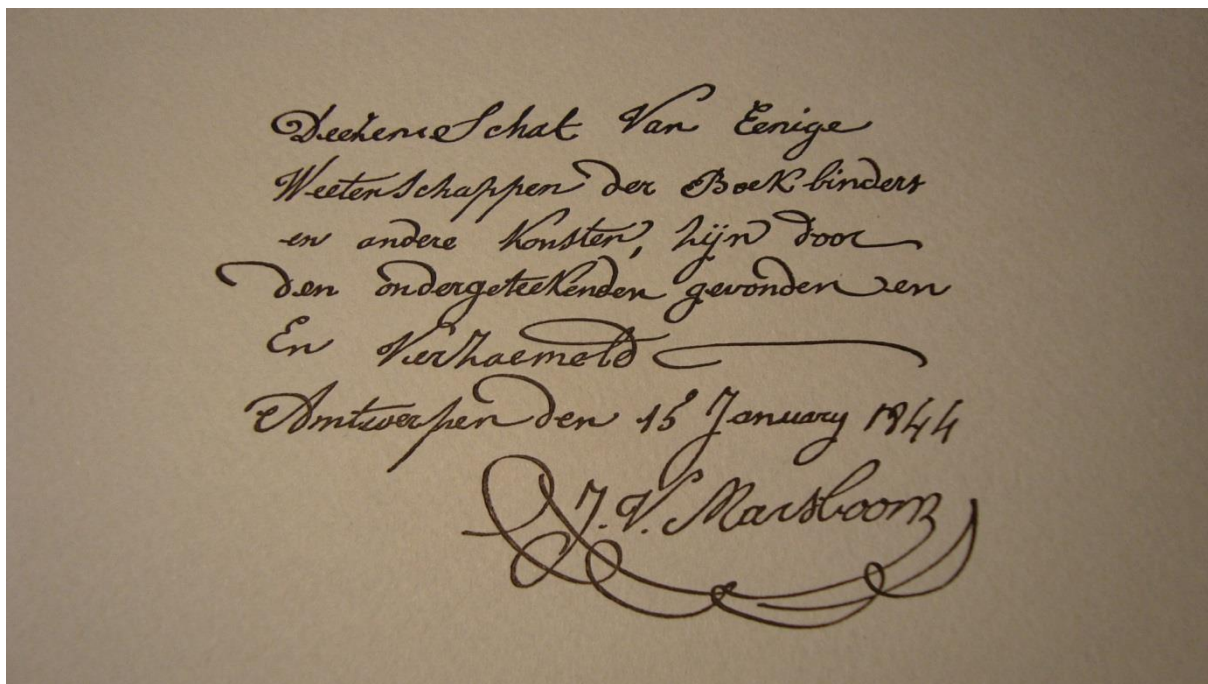 Deekene Schat Van Eenige
Weetenschappen der Boekbinders
en andere Konsten, zijn door
den ondergeteekenden gevonden en
En Verzaemeld
Antwerpen den 15 January 1844
J. V. Marsboom